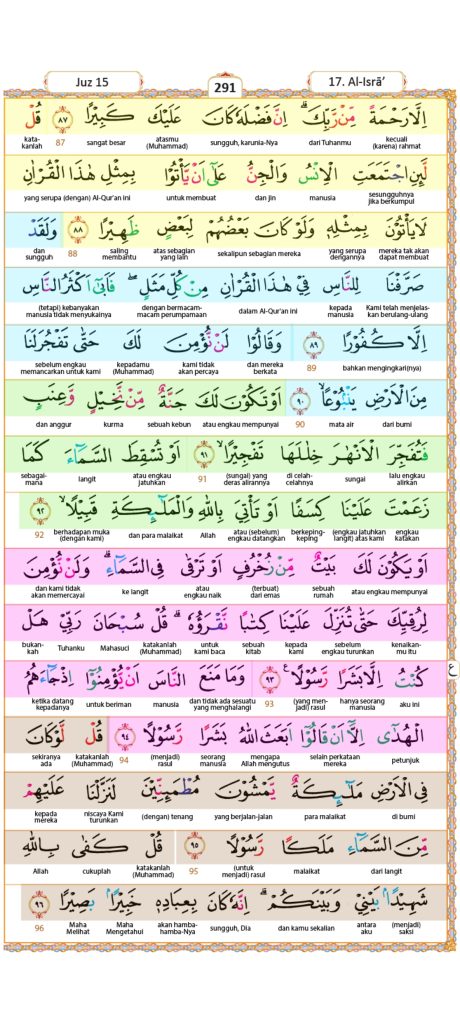 Juz 15
291
17. Al-Isrā’
اِلَّا رَحْمَةً مِّنْ رَّبِّكَ ۗاِنَّ فَضْلَهٗ كَانَ عَلَيْكَ كَبِيْرًا ٨٧ قُلْ
kecuali (karena) rahmat dari Tuhanmu sungguh, karunia-Nya atasmu (Muhammad) sangat besar 87 katakanlah
لَّىِٕنِ اجْتَمَعَتِ الْاِنْسُ وَالْجِنُّ عَلٰٓى اَنْ يَّأْتُوْا بِمِثْلِ هٰذَا الْقُرْاٰنِ
sesungguhnya jika berkumpul manusia dan jin untuk membuat yang serupa (dengan) Al-Qur'an ini
لَا يَأْتُوْنَ بِمِثْلِهٖ وَلَوْ كَانَ بَعْضُهُمْ لِبَعْضٍ ظَهِيْرًا ٨٨ وَلَقَدْ
mereka tak akan dapat membuat yang serupa dengannya sekalipun sebagian mereka atas sebagian yang lain saling membantu 88 dan sungguh
صَرَّفْنَا لِلنَّاسِ فِيْ هٰذَا الْقُرْاٰنِ مِنْ كُلِّ مَثَلٍۖ فَاَبٰىٓ اَكْثَرُ النَّاسِ
Kami telah menjelaskan berulang-ulang kepada manusia dalam Al-Qur'an ini dengan bermacam-macam perumpamaan (tetapi) kebanyakan manusia tidak menyukainya
اِلَّا كُفُوْرًا ٨٩ وَقَالُوْا لَنْ نُّؤْمِنَ لَكَ حَتّٰى تَفْجُرَ لَنَا
bahkan mengingkari(nya) 89 dan mereka berkata kami tidak akan percaya kepadamu (Muhammad) sebelum engkau memancarkan untuk kami
مِنَ الْاَرْضِ يَنْۢبُوْعًاۙ ٩٠ اَوْ تَكُوْنَ لَكَ جَنَّةٌ مِّنْ نَّخِيْلٍ وَّعِنَبٍ
dari bumi mata air 90 atau engkau mempunyai sebuah kebun kurma dan anggur
فَتُفَجِّرَ الْاَنْهٰرَ خِلٰلَهَا تَفْجِيْرًاۙ ٩١ اَوْ تُسْقِطَ السَّمَاۤءَ كَمَا
lalu engkau alirkan sungai di celah-celahnya (sungai) yang deras alirannya 91 atau engkau jatuhkan langit sebagaimana
زَعَمْتَ عَلَيْنَا كِسَفًا اَوْ تَأْتِيَ بِاللّٰهِ وَالْمَلٰۤىِٕكَةِ قَبِيْلًاۙ ٩٢
engkau katakan (engkau jatuhkan langit) atas kami berkeping-keping atau (sebelum) engkau datangkan Allah dan para malaikat berhadapan muka (dengan kami) 92
اَوْ يَكُوْنَ لَكَ بَيْتٌ مِّنْ زُخْرُفٍ اَوْ تَرْقٰى فِى السَّمَاۤءِ ۗوَلَنْ نُّؤْمِنَ
atau engkau mempunyai sebuah rumah (terbuat) dari emas atau engkau naik ke langit dan kami tidak akan memercayai
لِرُقِيِّكَ حَتّٰى تُنَزِّلَ عَلَيْنَا كِتٰبًا نَّقْرَؤُهٗ ۗ قُلْ سُبْحَانَ رَبِّيْ هَلْ
kenaikanmu itu sebelum engkau turunkan kepada kami sebuah kitab untuk kami baca katakanlah (Muhammad) Mahasuci Tuhanku bukankah
كُنْتُ اِلَّا بَشَرًا رَّسُوْلًا ٩٣ وَمَا مَنَعَ النَّاسَ اَنْ يُّؤْمِنُوْٓا اِذْ جَاۤءَهُمُ
ع
aku ini hanya seorang manusia (yang menjadi) rasul 93 dan tidak ada sesuatu yang menghalangi manusia untuk beriman ketika datang kepadanya
الْهُدٰٓى اِلَّآ اَنْ قَالُوْٓا اَبَعَثَ اللّٰهُ بَشَرًا رَّسُوْلًا ٩٤ قُلْ لَّوْ كَانَ
petunjuk selain perkataan mereka mengapa Allah mengutus seorang manusia (menjadi) rasul 94 katakanlah (Muhammad) sekiranya ada
فِى الْاَرْضِ مَلٰۤىِٕكَةٌ يَّمْشُوْنَ مُطْمَىِٕنِّيْنَ لَنَزَّلْنَا عَلَيْهِمْ
di bumi para malaikat yang berjalan-jalan (dengan) tenang niscaya Kami turunkan kepada mereka
مِّنَ السَّمَاۤءِ مَلَكًا رَّسُوْلًا ٩٥ قُلْ كَفٰى بِاللّٰهِ
dari langit malaikat (untuk menjadi) rasul 95 katakanlah (Muhammad) cukuplah Allah
شَهِيْدًاۢ بَيْنِيْ وَبَيْنَكُمْۗ اِنَّهٗ كَانَ بِعِبَادِهٖ خَبِيْرًاۢ بَصِيْرًا ٩٦
(menjadi) saksi antara aku dan kamu sekalian sungguh, Dia akan hamba-hamba-Nya Maha Mengetahui Maha Melihat 96